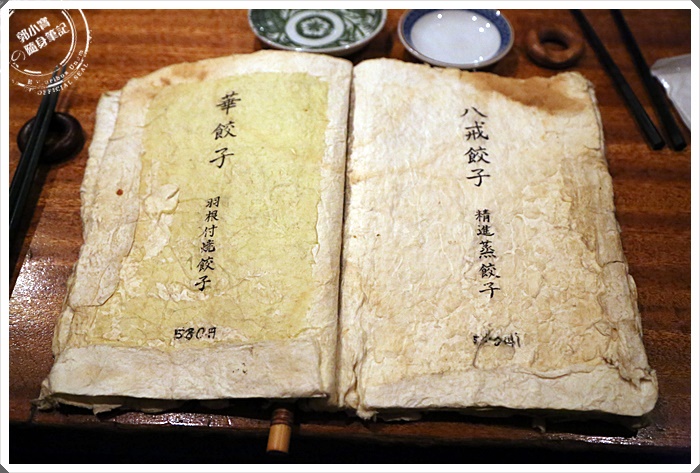 郭小寶
隨身筆記
OFFICIAL SEAL
華餃子
羽根付焼餃子
530円
八戒餃子
精進蒸餃子